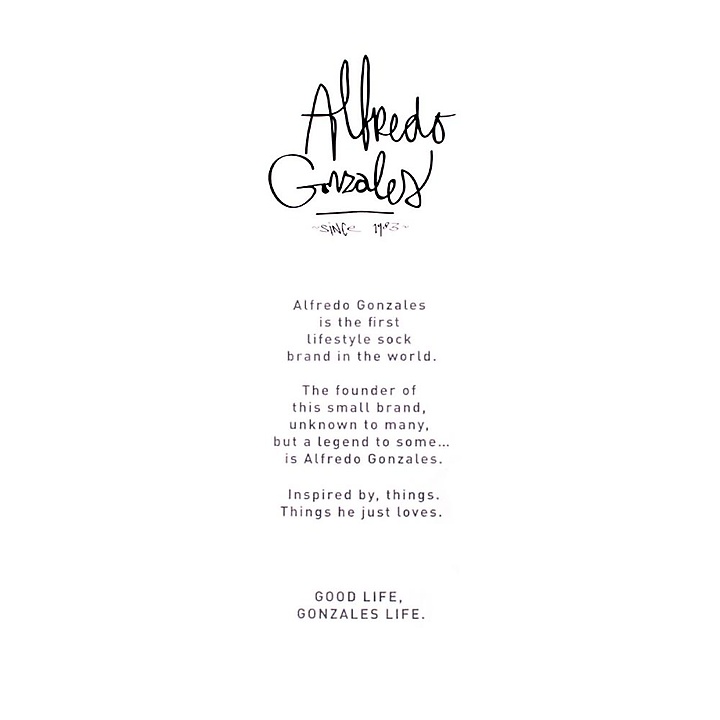 Alfredo
Gonzales
SINCE
Alfredo Gonzales
is the first
lifestyle sock
brand in the world.
The founder of
this small brand,
unknown to many,
but a legend to some...
is Alfredo Gonzales.
Inspired by, things.
Things he just loves.
GOOD LIFE,
GONZALES LIFE.